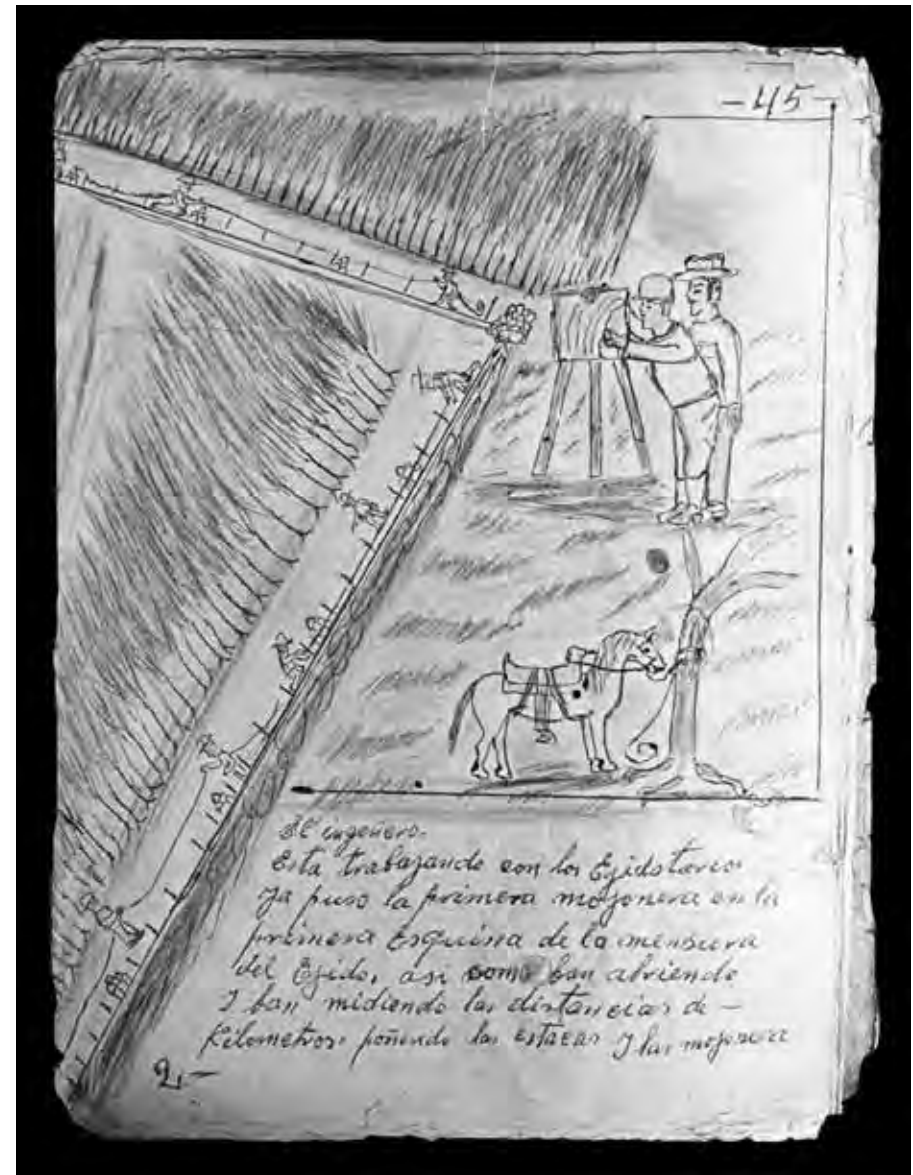 -45-
El ingeñero.
Esta trabajando con los Ejidatarios
Ya puso la primera mojonera en la
primera Esquina de la mensura
del Ejido, asi como ban abriendo
I ban midiendo las distancias de -
Kilometros, poñendo las estacas I las mojonera
2,-